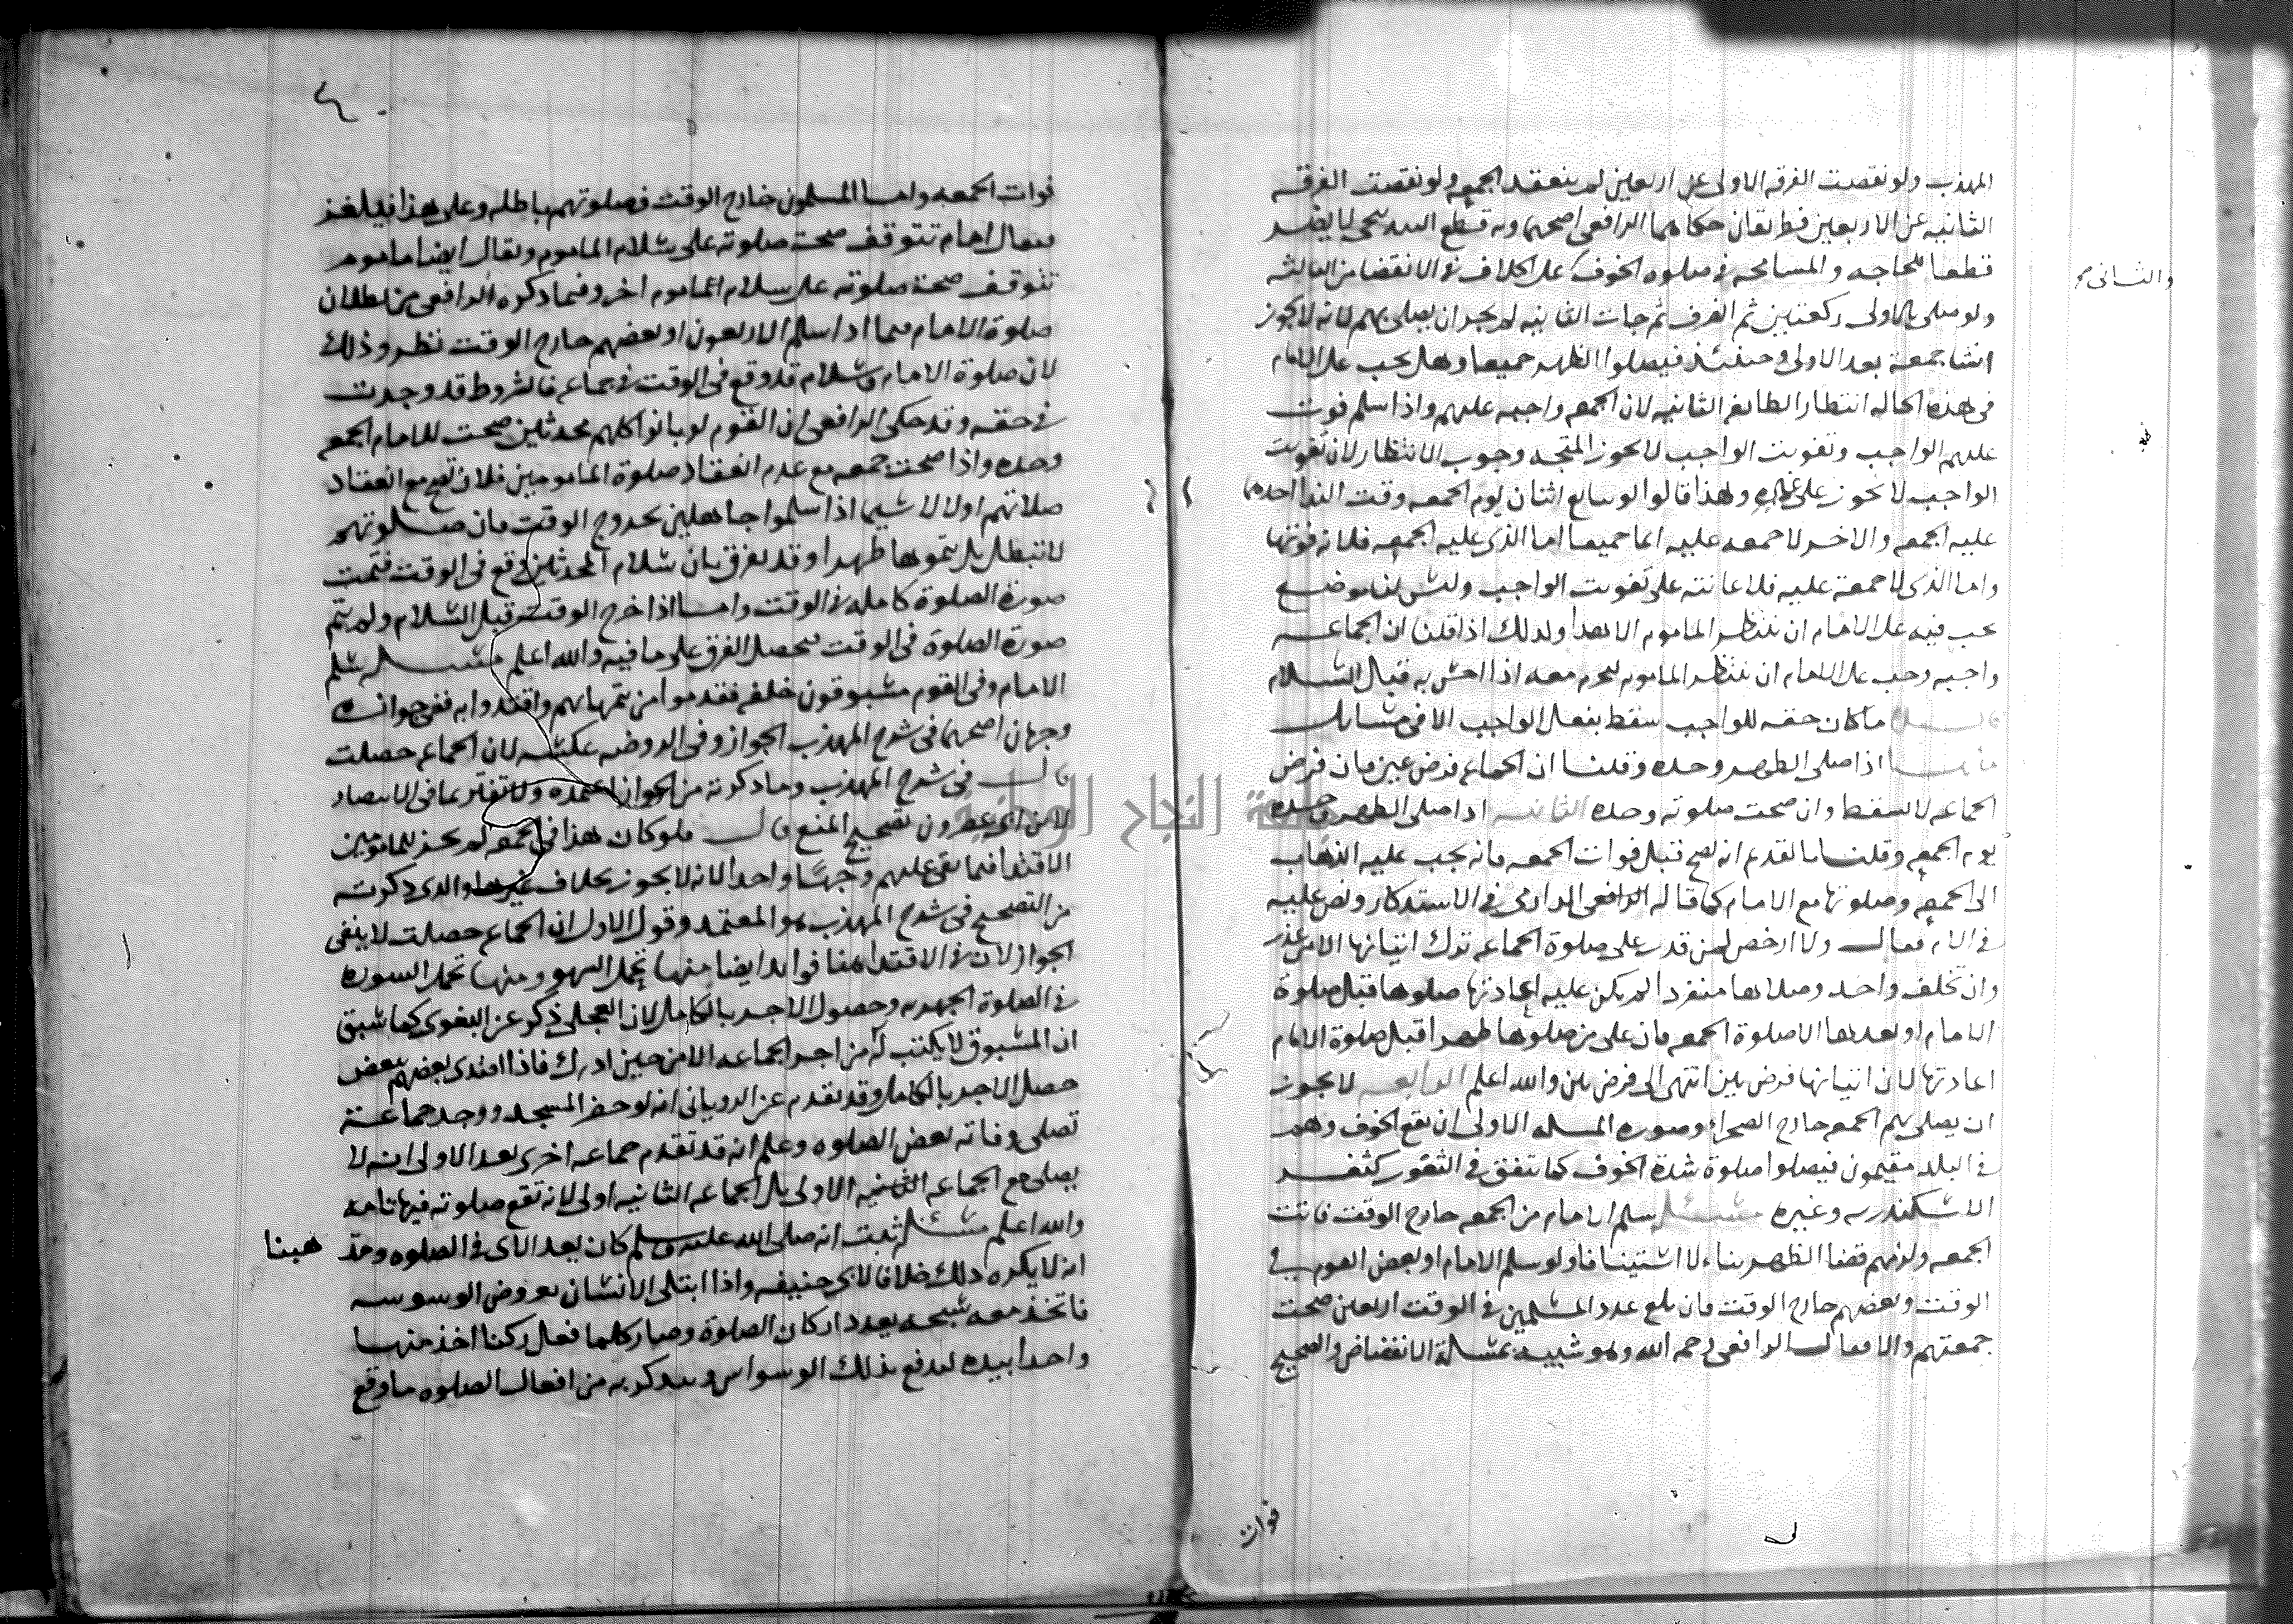 المهذب ولو نقصت الفرقه الاولى عن اربعين لم ينعقد الجمعه ولو نقصت الفرقه
الثانيه عن الاربعين فطريقان حكاهما الرافعى اصحهما وبه قطع لا يضر
والثانى
قطعا للحاجه والمسامحه فى صلوه الخوف على الخلاف فى الانفضاض
ولو صلى بالاولى ركعتين ثم الفرف ثم جات الثانيه لم يجز ان يصلى بهم لانه لا يجوز
انشا جمعة بعد الاولى وحينئذ فيصلوا الظهر جميعا وهل يجب على الامام
فى هذه الحاله انتظار الطايفه الثانيه لان الجمعه واجبه عليهم واذا سلم فوت
عليهم الواجب وتفويت الواجب لا يجوز المتجه وجوب الانتظار لان تفويت
الواجب لا يجوز على غيره ولهذا قالوا لو بايع اثنان يوم الجمعه وقت الندا احدهما
عليه الجمعه والاخر لا جمعه عليه اثما جميعا اما الذى عليه الجمعه فلانه فوتها
واما الذى لا جمعة عليه فلاعانته على تفويت الواجب وليس لنا موضع
يجب فيه على الامام ان ينتظر الماموم الا هذا ولذلك اذا قلنا ان الجماعه
واجبه وجب على الامام ان ينتظر الماموم ليحرم معه اذا احس به قبل السلام
ما كان حقه للواجب سقط بفعل الواجب الا فى مسايل
اذا صلى الظهر وحده وقلنا ان الجماعه فرض عين فان فرض
الجماعه لا يسقط وان صحت صلوته وحده الثانيه اذا صلى الظهر وحده
يوم الجمعه وقلنا بالقديم انه يصح قبل فوات الجمعه فانه يجب عليه الذهاب
الى الجمعه وصلوتها مع الامام كما قاله الدارمى فى الاستذكار ونص عليه
فى الام فقال ولا ارخص لمن قدر على صلوة الجماعه ترك اتيانها الا من عذر
وان تخلف واحد وصلاها منفردا لم يكن عليه اعادتها صلوها قبل صلوة
الامام او بعدها الا صلوة الجمعه فان على من صلوها ظهرا قبل صلوة الامام
اعادتها لان اتيانها فرض عين انتهى والله اعلم الرابعه لا يجوز
ان يصلى بهم الجمعه خارج الصحراء وصوره المسله الاولى ان يقع الخوف وهم
فى البلد مقيمون فيصلوا صلوة شدة الخوف كما يتفق فى الثغور كثغر
الاسكندريه وغيره مسئله سلم الامام من الجمعه خارج الوقت فاتت
الجمعه ولزمهم قضا الظهر بناء لا استينافا ولو سلم الامام او بعض القوم فى
الوقت وبعضهم خارج الوقت فان بلغ عدد المسلمين فى الوقت اربعين صحت
جمعتهم والا فقال الرافعى رحمه الله وهو شبيه بمسلة الانفضاض والصحيح
فوات
فوات الجمعه واما المسلمون خارج الوقت فصلوتهم باطله وعلى هذا فيلغز
فيقال امام تتوقف صحة صلوته على سلام الماموم ويقال ايضا ماموم
تتوقف صحة صلوته على سلام الماموم اخر وفيما ذكره الرافعى من بطلان
صلوة الامام فيما اذا سلم الاربعون او بعضهم خارج الوقت نظر وذلك
لان صلوة الامام وسلامه قد وقع فى الوقت فى جماعه فالشروط قد وجدت
فى حقه وقد حكى الرافعى ان القوم لو بانوا كلهم محدثين صحت للامام الجمعه
وحده واذا صحت جمعه مع عدم انعقاد صلوة المامومين فلان تصح مع انعقاد
صلاتهم اولا لا سيما اذا سلموا جاهلين بخروج الوقت فان صلوتهم
لا تبطل بل يتموها ظهرا وقد يفرق بان سلام المحدثين وقع فى الوقت فتمت
صورة الصلوة كامله فى الوقت واما اذا خرج الوقت قبل السلام ولم يتم
صورة الصلوة فى الوقت فيحصل الفرق على ما فيه والله اعلم مسئله سلم
الامام وفى القوم مسبوقون خلفه فقدموا من يتمها بهم واقتدوا به ففى جوازه
وجهان اصحهما فى شرح المهذب الجواز وفى الروضه عكسه لان الجماعه حصلت
قال فى شرح المهذب وما ذكرته من الجواز اعتمده ولا تغتر بما فى الانتصار
لابن ابى عصرون تصحيح المنع قال فلو كان هذا فى الجمعه لم يجز للمامومين
الاقتدا فيما بقى عليهم وجها واحدا لانه لا يجوز بخلاف غيرها والذى ذكرته
من التصحيح فى شرح المهذب هو المعتمد وقول الاول ان الجماعه حصلت لا ينفى
الجواز لان فى الاقتدا هنا فوايد ايضا منها تحمل السهو ومنها تحمل السوره
فى الصلوة الجهريه وحصول الاجر بالكامل لان العجلى ذكر عن البغوى كما سبق
ان المسبوق لا يكتب له من اجر الجماعه الا من حين ادرك فاذا اقتدى بعضهم ببعض
حصل الاجر بالكامل وقد تقدم عن الرويانى انه لو حضر المسجد ووجد جماعة
تصلى وفاته بعض الصلوه وعلم انه قد تقدم جماعه اخرى بعد الاولى انه لا
يصلى مع الجماعه الاولى بل الجماعه الثانيه اولى لانه تقع صلوته فيها تامه
والله اعلم مسئله ثبت انه صلى الله عليه وسلم كان يعد الاى فى الصلوه
هبنا
انه لا يكره ذلك خلافا لابى حنيفه واذا ابتلى الانسان بعروض الوسوسه
فاتخذ معه سبحه بعدد اركان الصلوة وصار كلما فعل ركنا اخذ منها
واحدا بيده ليدفع بذلك الوسواس ويتذكر به من افعال الصلوه ما وقع